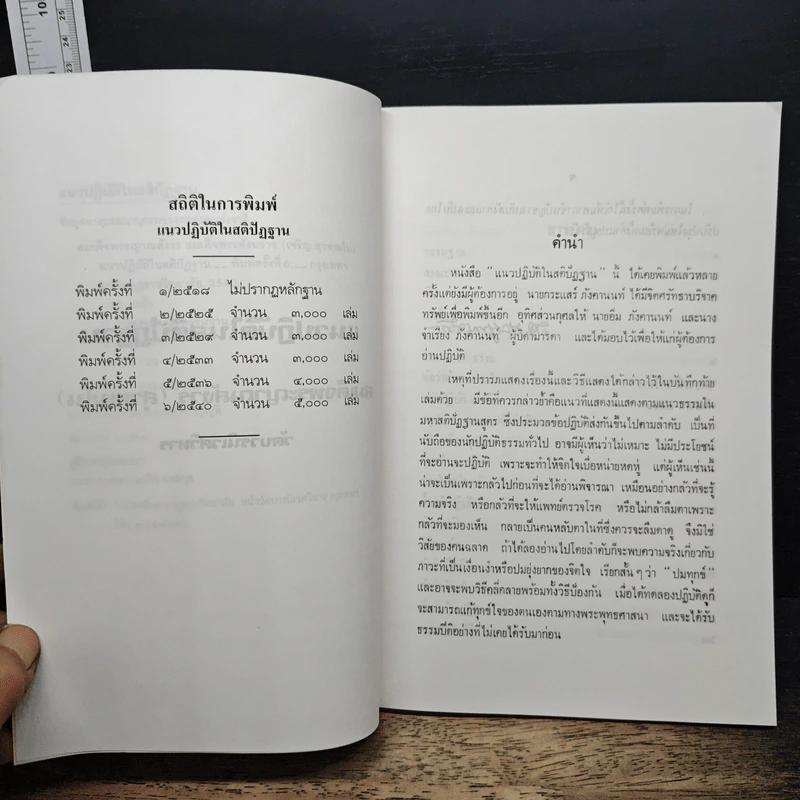 สถิติในการพิมพ์
แนวปฏิบัติในสติปัฏฐาน
พิมพ์ครั้งที่ ๑/๒๕๑๘ ไม่ปรากฏหลักฐาน
พิมพ์ครั้งที่ ๒/๒๕๒๕ จำนวน ๓,๐๐๐ เล่ม
พิมพ์ครั้งที่ ๓/๒๕๒๙ จำนวน ๓,๐๐๐ เล่ม
พิมพ์ครั้งที่ ๔/๒๕๓๓ จำนวน ๓,๐๐๐ เล่ม
พิมพ์ครั้งที่ ๕/๒๕๓๖ จำนวน ๔,๐๐๐ เล่ม
พิมพ์ครั้งที่ ๖/๒๕๔๐ จำนวน ๕,๐๐๐ เล่ม
คำนำ
หนังสือ "แนวปฏิบัติในสติปัฏฐาน" นี้ ได้เคยพิมพ์แล้วหลาย
ครั้งแต่ยังมีผู้ต้องการอยู่ นายกระแสร์ ภังคานนท์ ได้มีจิตศรัทธาบริจาค
ทรัพย์เพื่อพิมพ์ขึ้นอีก อุทิศส่วนกุศลให้ นายอิ่ม ภังคานนท์ และนาง
จำเรียง ภังคานนท์ ผู้บิดามารดา และได้มอบไว้เพื่อให้แก่ผู้ต้องการ
อ่านปฏิบัติ
เหตุที่ปรารภแสดงเรื่องนี้และวิธีแสดงได้กล่าวไว้ในบันทึกท้าย
เล่มด้วย มีข้อที่ควรกล่าวย้ำคือแนวที่แสดงนี้แสดงตามแนวธรรมใน
มหาสติปัฏฐานสูตร ซึ่งประมวลข้อปฏิบัติส่งกันขึ้นไปตามลำดับ เป็นที่
นับถือของนักปฏิบัติธรรมทั่วไป อาจมีผู้เห็นว่าไม่เหมาะ ไม่มีประโยชน์
ที่จะอ่านจะปฏิบัติ เพราะจะทำให้จิตใจเบื่อหน่ายหดหู่ แต่ผู้เห็นเช่นนี้
น่าจะเป็นเพราะกลัวไปก่อนที่จะได้อ่านพิจารณา เหมือนอย่างกลัวที่จะรู้
ความจริง หรือกลัวที่จะให้แพทย์ตรวจโรค หรือไม่กล้าลืมตาเพราะ
กลัวที่จะมองเห็น กลายเป็นคนหลับตาในที่ซึ่งควรจะลืมตาดู จึงมิใช่
วิสัยของคนฉลาด ถ้าได้ลองอ่านไปโดยลำดับก็จะพบความจริงเกี่ยวกับ
ภาวะที่เป็นเงื่อนงำหรือปมยุ่งยากของจิตใจ เรียกสั้นๆ ว่า "ปมทุกข์"
และอาจจะพบวิธีคลี่คลายพร้อมทั้งวิธีป้องกัน เมื่อได้ทดลองปฏิบัติดูก็
จะสามารถแก้ทุกข์ใจของตนเองตามทางพระพุทธศาสนา และจะได้รับ
ธรรมปีติอย่างที่ไม่เคยได้รับมาก่อน